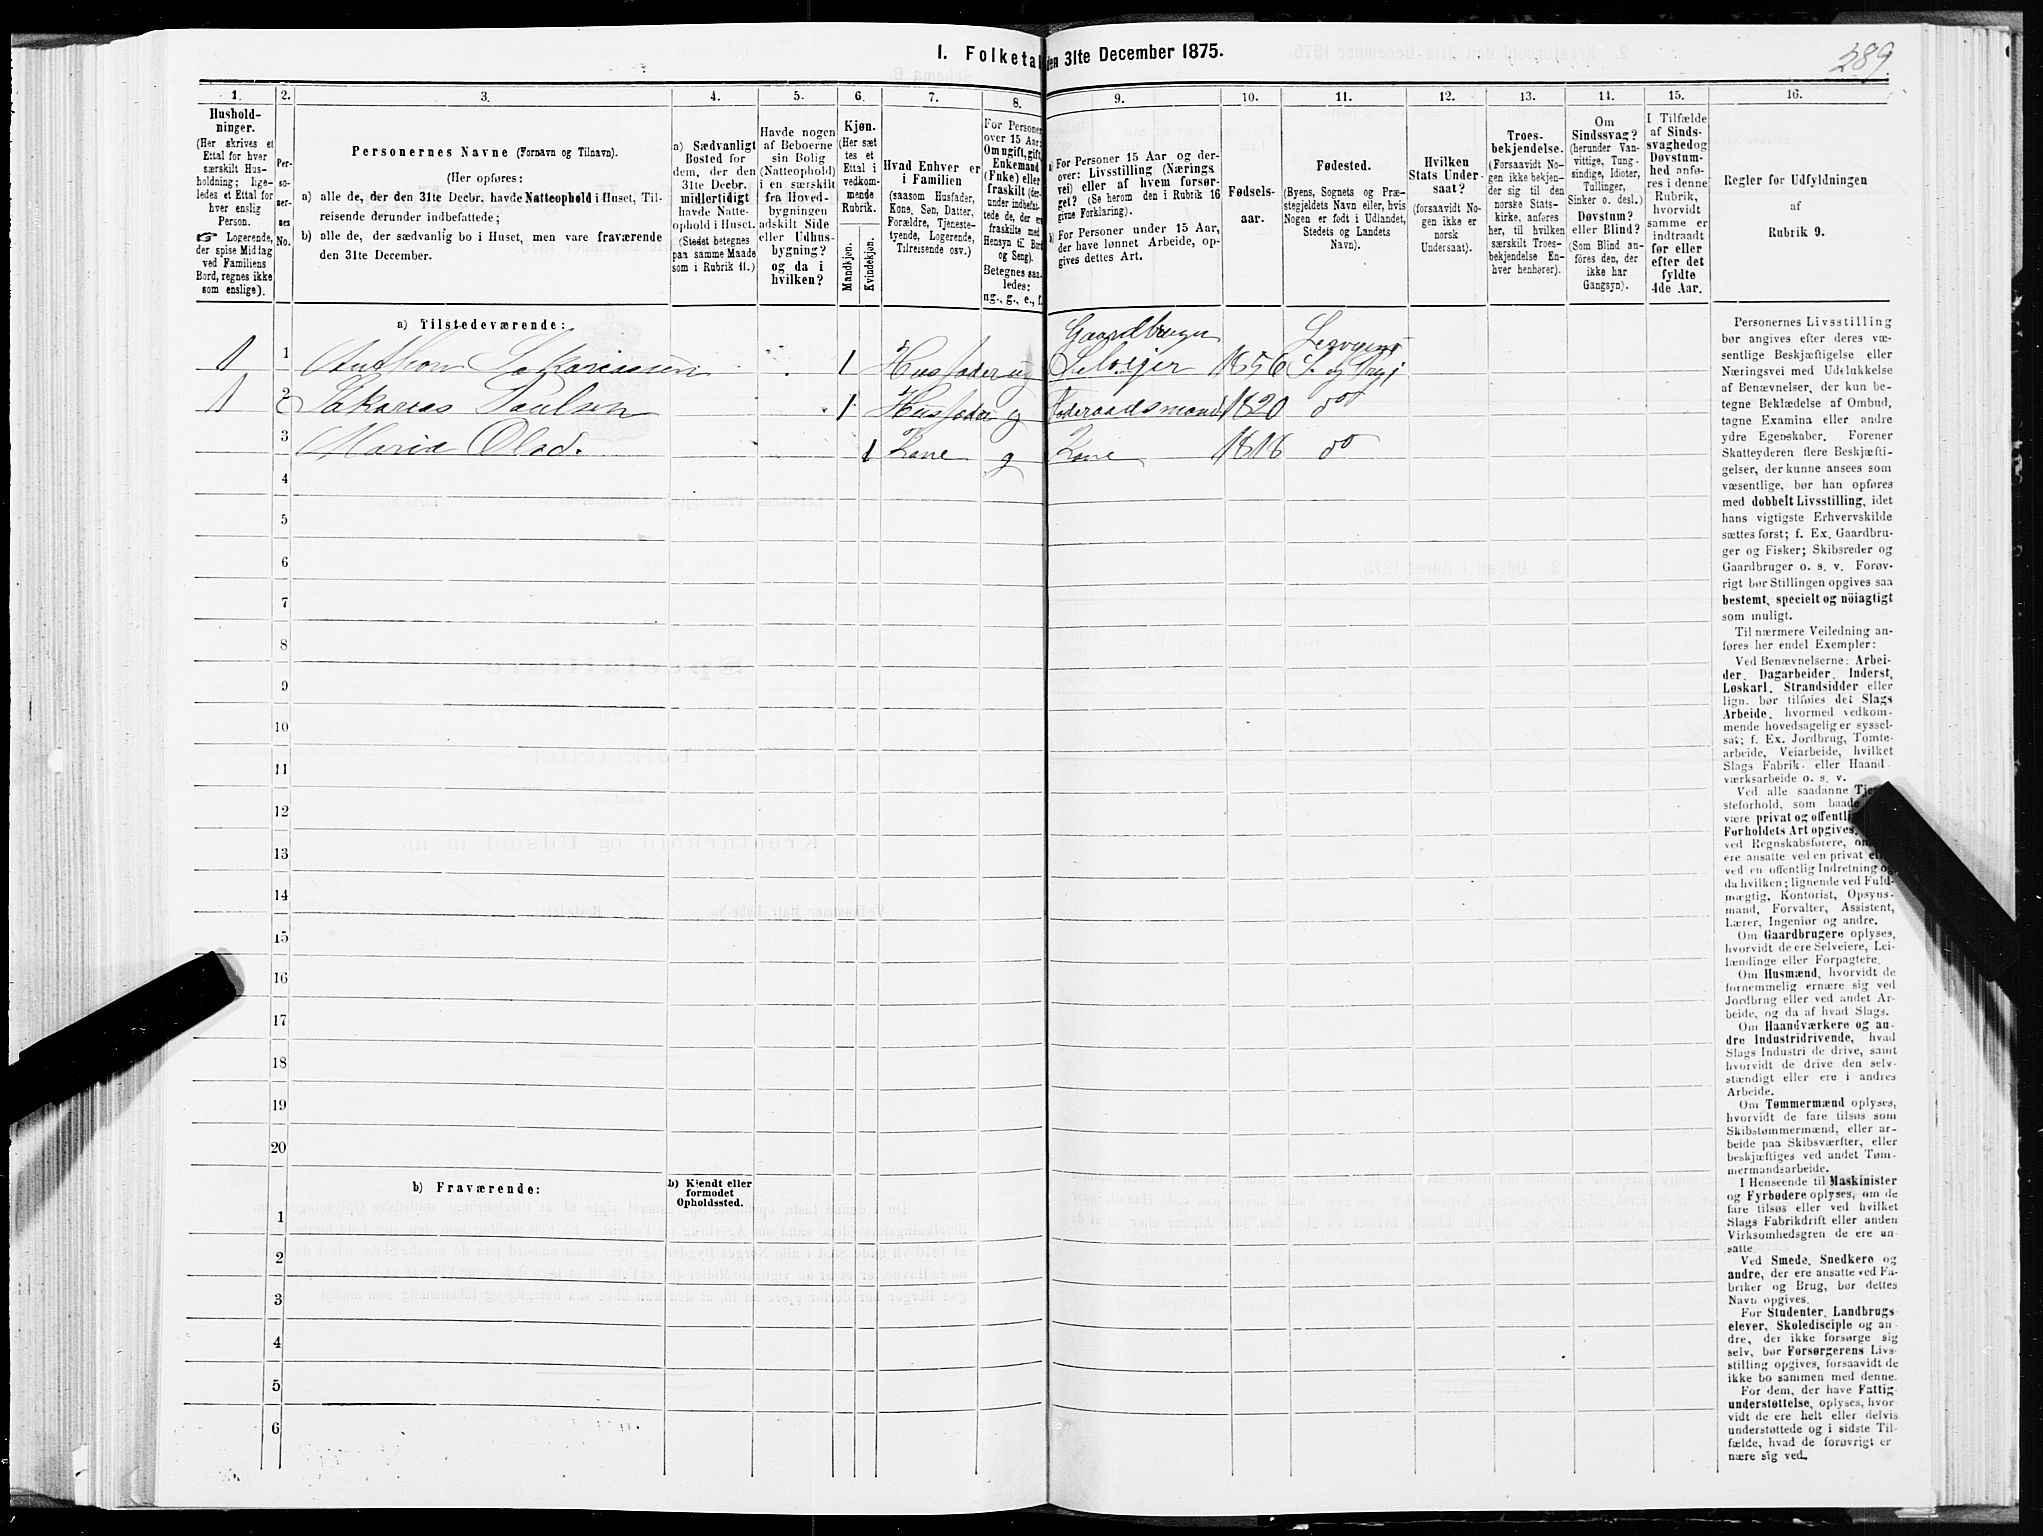 289
I. Folketal den 31te December 1875.
1. 2. 3. 4. 5. 6. 7. 8. 9. 10. 11. 12. 13. 14. 15. 16.
Hushold-
ninger.
(Her skrives et
Ettal for hver
særskilt Hus-
holdning; lige-
ledes et Ettal for
hver enslig
Person.
☞ Logerende,
der spise Middag
ved Familiens
Bord, regnes ikke
som enslige).
Per-
so-
ner-
nes
No.
Personernes Navne (Fornavn og Tilnavn).
(Her opføres:
a) alle de, der den 31te Decbr. havde Natteophold i Huset, Til-
reisende derunder indbefattede;
b) alle de, der sædvanlig bo i Huset, men vare fraværende
den 31te December.
a) Sædvanligt
Bosted for
dem, der den
31te Decbr.
midlertidigt
havde Natte-
ophold i Huset.
(Stedet betegnes
paa samme Maade
som i Rubrik 11.)
Havde nogen
af Beboerne
sin Bolig
(Natteophold)
i en særskilt
fra Hoved-
bygningen
adskilt Side
eller Udhus-
bygning?
og da i
hvilken?
Kjøn.
(Her sæt
tes et
Ettal i
vedkom-
mende
Rubrik.
Mandkjøn.
Kvindekjøn.
Hvad Enhver er
i Familien
(saasom Husfader,
Kone, Søn, Datter,
Forældre, Tjeneste-
tyende, Logerende,
Tilreisende osv.)
For Personer
over 15 Aar:
Om ugift, gift,
Enkemand
(Enke) eller
fraskilt (der-
under indbefat-
tede de, der er
fraskilte med
Hensyn til Bord
og Seng).
Betegnes saa-
ledes:
ug., g., e., f.
a) For Personer 15 Aar og der-
over: Livsstilling (Nærings
vei) eller af hvem forsør-
get? (Se herom den i Rubrik 16
givne Forklaring).
b) For Personer under 15 Aar,
der have lønnet Arbeide, op-
gives dettes Art.
Fødsels-
aar.
Fødested.
(Byens, Sognets og Præ-
stegjeldets Navn eller, hvis
Nogen er født i Udlandet,
Stedets og Landets
Navn).
Hvilken
Stats Under-
saat?
(forsaavidt No-
gen ikke er
norsk
Undersaat).
Troes-
bekjendelse.
(Forsaavidt No-
gen ikke bekjen-
der sig til den
norske Stats-
kirke, anføres
her, til hvilken
særskilt Troes-
bekjendelse En-
hver henhører).
Om
Sindssvag?
(herunder Van-
vittige, Tung-
sindige, Idioter,
Tullinger,
Sinker o. desl.)
Døvstum?
eller Blind?
(Som Blind an-
føres den, der
ikke har
Gangsyn).
I Tilfælde
af Sinds-
svaghed og
Døvstum-
hed anfø-
res i denne
Rubrik,
hvorvidt
samme er
indtraadt
før eller
efter det
fyldte
4de Aar.
Regler for Udfyldningen
af
Rubrik 9.
a) Tilstedeværende:
Gaardbruger
1 1 Anthon Sakariassen 1 Husfader ug Selveier 1856 S. og Pgj
1 2 Sakarias Paulsen 1 Husfader g Føderaadsmand 1820 do
3 Maria Olsd. 1 Kone g Kone 1818 do
4
5
6
7
8
9
10
11
12
13
14
15
16
17
18
19
20
b) Fraværende:
b) Kjendt eller
formodet
Opholdssted.
1
2
3
4
5
6
Personernes Livsstilling
bør angives efter deres væ-
sentlige Beskjæftigelse eller
Næringsvei med Udelukkelse
af Benævnelser, der kun be-
tegne Beklædelse af Ombud,
tagne Examina eller andre
ydre Egenskaber. Forener
Skatteyderen flere Beskjæfti-
gelser, der kunne ansees som
væsentlige, bør han opføres
med dobbelt Livsstilling, idet
hans vigtigste Erhvervskilde
sættes først; f. Ex. Gaardbru-
ger og Fisker; Skibsreder og
Gaardbruger o. s. v. Forøv-
rigt bør Stillingen opgives saa
bestemt, specielt og nöiagtigt
som muligt.
Til nærmere Veiledning an-
føres her endel Exempler:
Ved Benævnelserne: Arbei-
der, Dagarbeider, Inderst,
Løskarl, Strandsidder eller
lign. bør tilføies det Slags
Arbeide, hvormed vedkom-
mende hovedsagelig er syssel-
sat; f. Ex. Jordbrug, Tomte-
arbeide, Veiarbeide, hvilket
Slags Fabrik- eller Haand-
værksarbeide o. s. v.
Ved alle saadanne
steforhold, som baade
være privat og
Forholdets Art opgives,
ved Regnskabsførere,
ere ansatte ved en privat
ved en offentlig Indretning og
da hvilken; lignende ved Fuld-
mægtig, Kontorist, Opsyns-
mand, Forvalter, Assistent,
Lærer, Ingeniør og andre.
Om Gaardbrugere oplyses,
hvorvidt de ere Selveiere, Lei-
lændinge eller Forpagtere.
Om Husmænd, hvorvidt de
fornemmelig ernære sig ved
Jordbrug eller ved andet Ar-
beide, og da af hvad Slags.
Om Haandværkere og an-
dre Industridrivende, hvad
Slags Industri de drive, samt
hvorvidt de drive den selv-
stændigt eller ere i andres
Arbeide.
Om Tømmermænd oplyses,
hvorvidt de fare tilsøs som
Skibstømmermænd, eller ar-
beide paa Skibsværfter, eller
beskjæftiges ved andet Tøm-
mermandsarbeide.
I Henseende til Maskinister
og Fyrbødere oplyses, om de
fare tilsøs eller ved hvilket
Slags Fabrikdrift eller anden
Virksomhedsgren de ere an-
satte.
Ved Smede, Snedkere og
andre, der ere ansatte ved Fa-
briker og Brug, bør dettes
Navn opgives.
For Studenter, Landbrugs-
elever, Skoledisciple og an-
dre, der ikke forsørge sig
selv, bør Forsørgerens Livs-
stilling opgives, forsaavidt de
ikke bo sammen med denne.
For dem, der have Fattig-
understøttelse, oplyses, hvor-
vidt de ere helt eller delvis
understøttede og i sidste Til-
fælde, hvad de forøvrigt er-
nære sig ved.